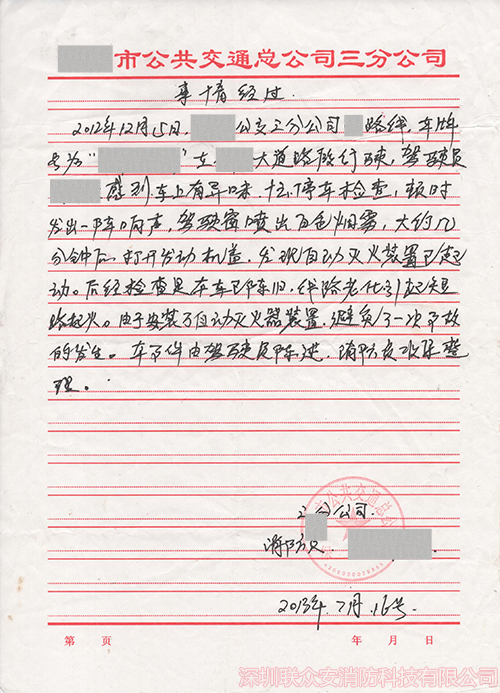 市公共交通总公司三分公司
事情经过
2012年12月15日, 公交三分公司 路线, 车牌
号为“ ”在 大道路段行驶, 驾驶员
感到车上有异味, 估停车检查, 顿时
发出一阵响声, 驾驶窗喷出白色烟雾, 大约几
分钟后, 打开发动机盖, 发现自动灭火装置已起
动。后经检查是本车已陈旧, 线路老化引起短
路起火。由于安装了自动灭火器装置, 避免了一次事故
的发生。车 件由驾驶员陈述, 消防员收集整
理。
公司
消防员
2013年7月16号
第 页 年 月 日
深圳联众安消防科技有限公司